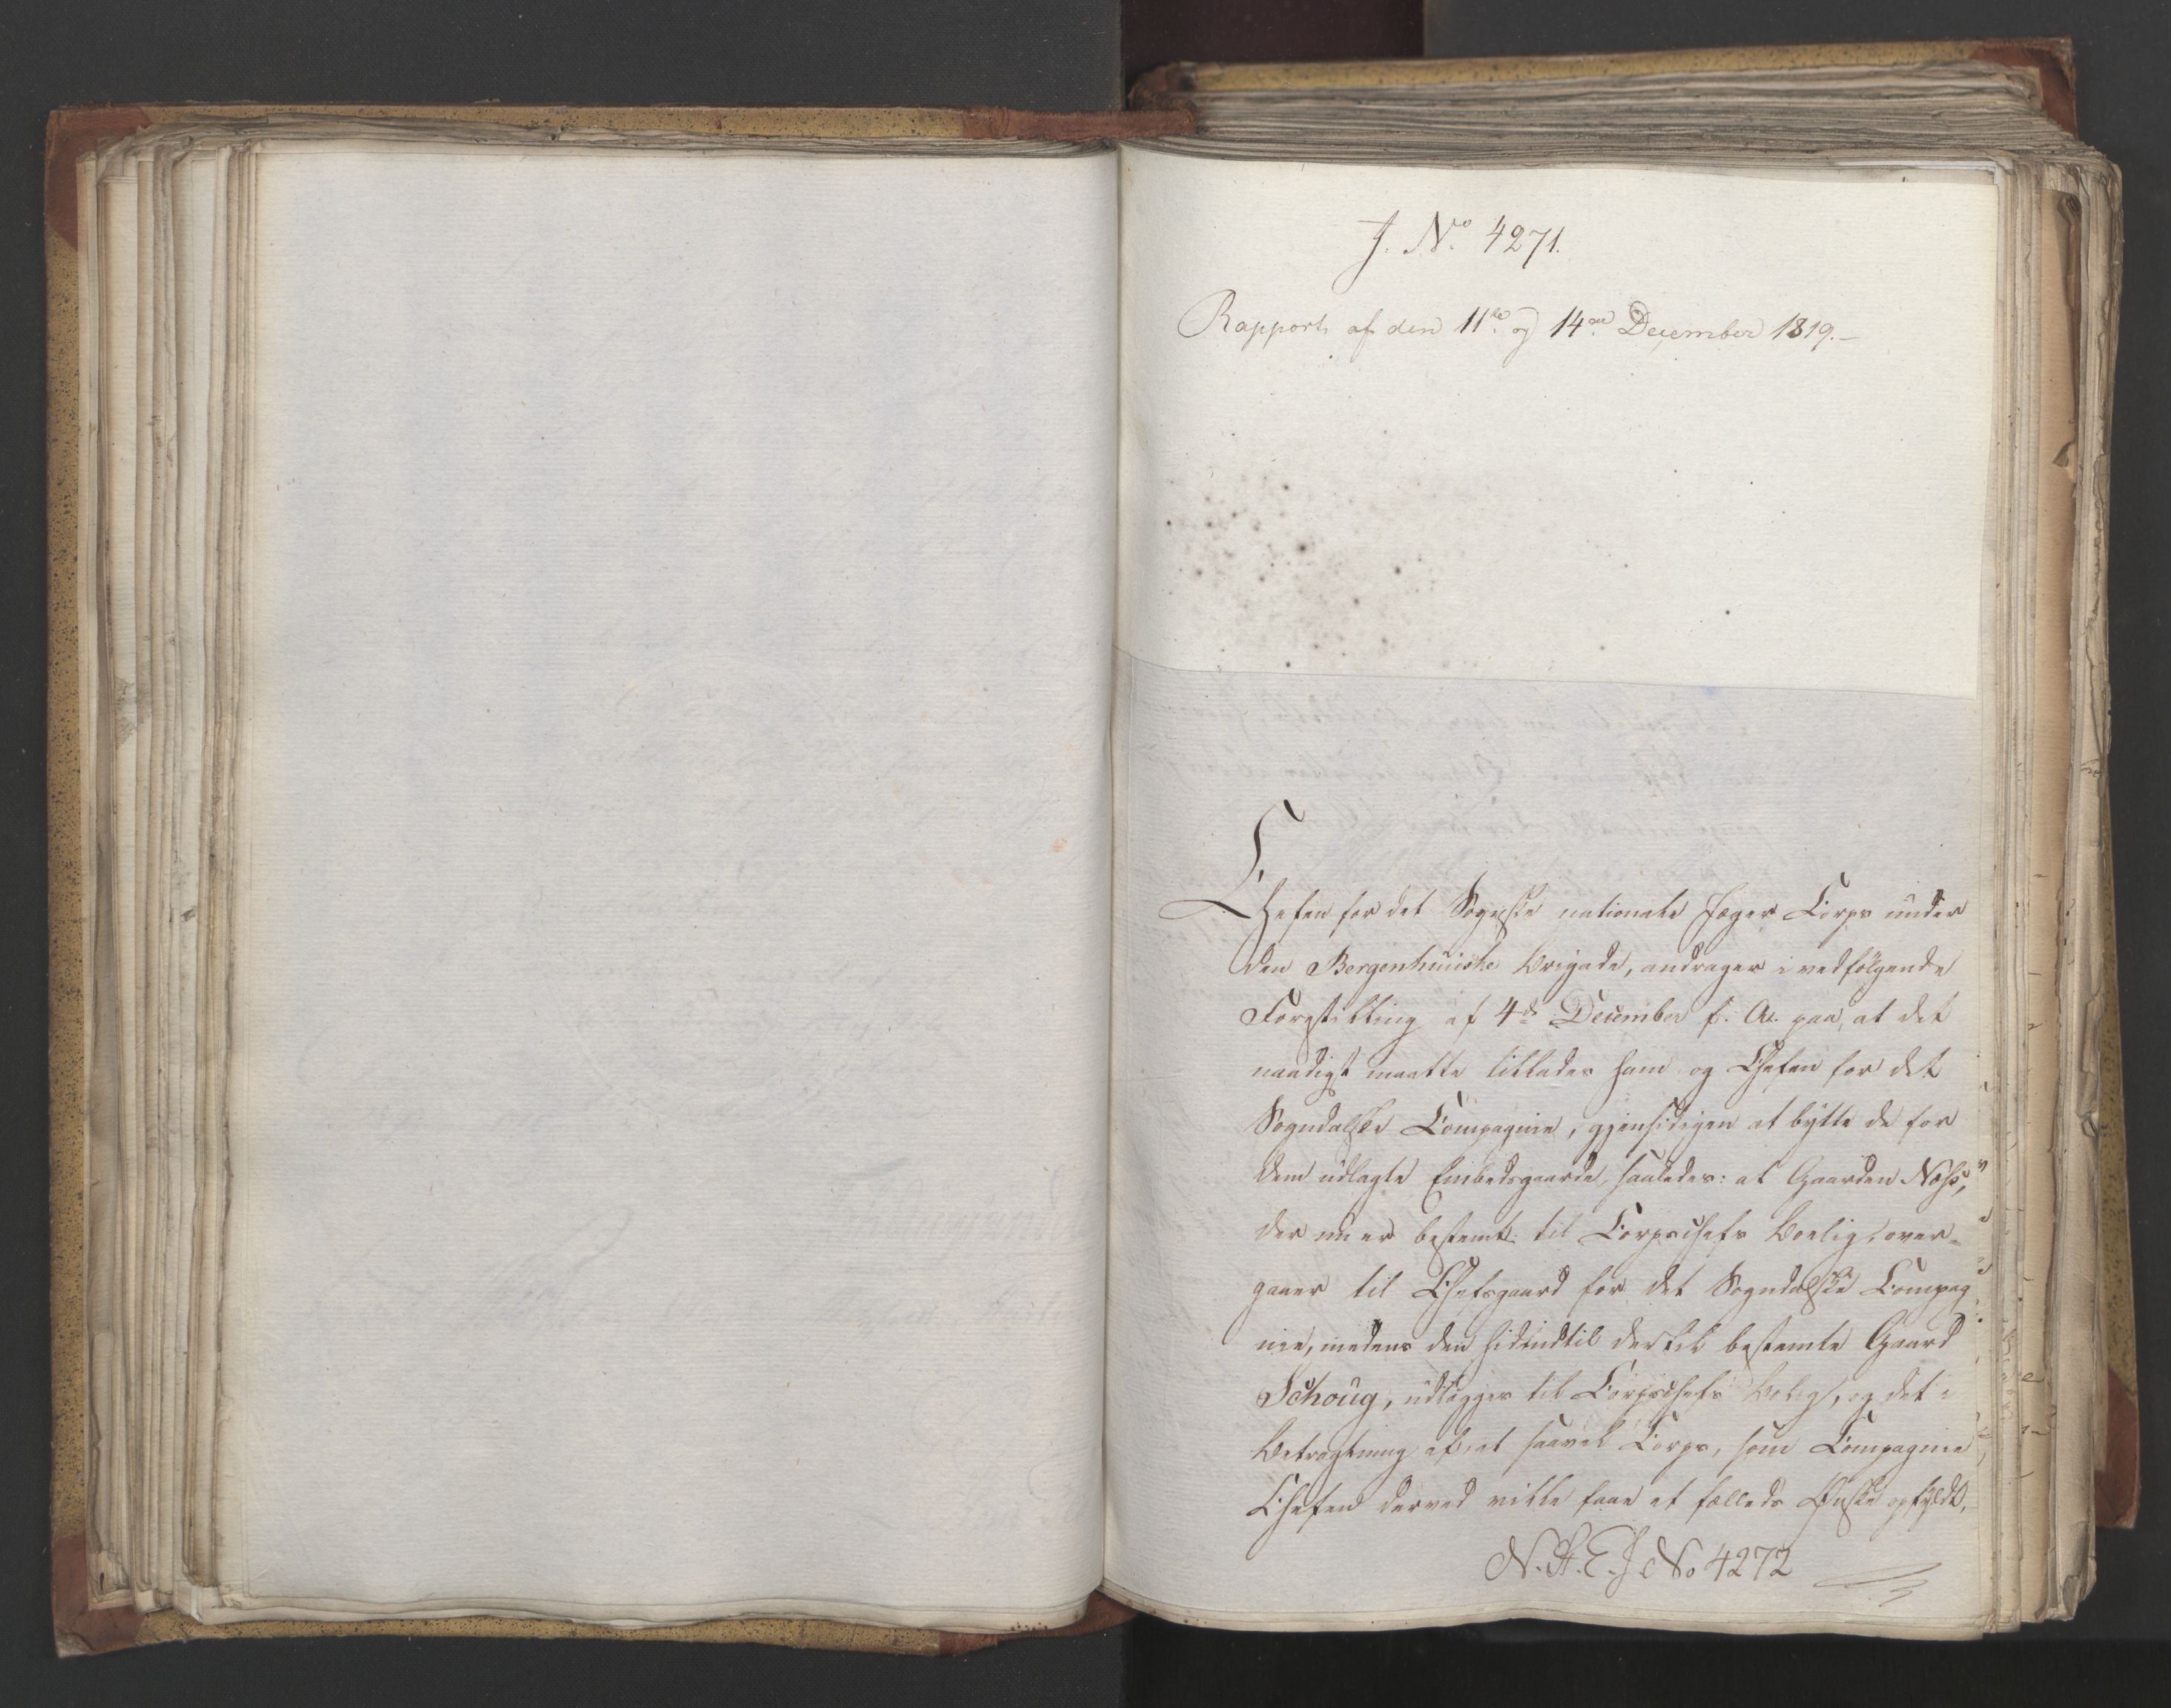 J. No. 4271.
Rapport af den 11te og 14de December 1819.–
Chefen for det Sognske nationale Jæger Corps under
den Bergenhuusske Brigade, andrager i vedfølgende
Forestilling af 4de December f. A. paa, at det
naadigst maatte tillades ham og Chefen for det
Sogndalske Compagnie, gjensidigen at bytte de for
dem udlagte Embedsgaarde, saaledes: at Gaarden Næss,
der nu er bestemt til Corpschefs Boelig, over-
gaaer til Chefsgaard for det Sogndalske Compag
nie, medens den hidindtil dertil bestemte Gaard
Schoug, udlægges til Corpschefs Bolig, og det i
Betragtning af, at saavel Corps, som Compagnie
Chefen derved ville faae et fælleds Ønske opfyldt,
N. A. E. J. No 4272